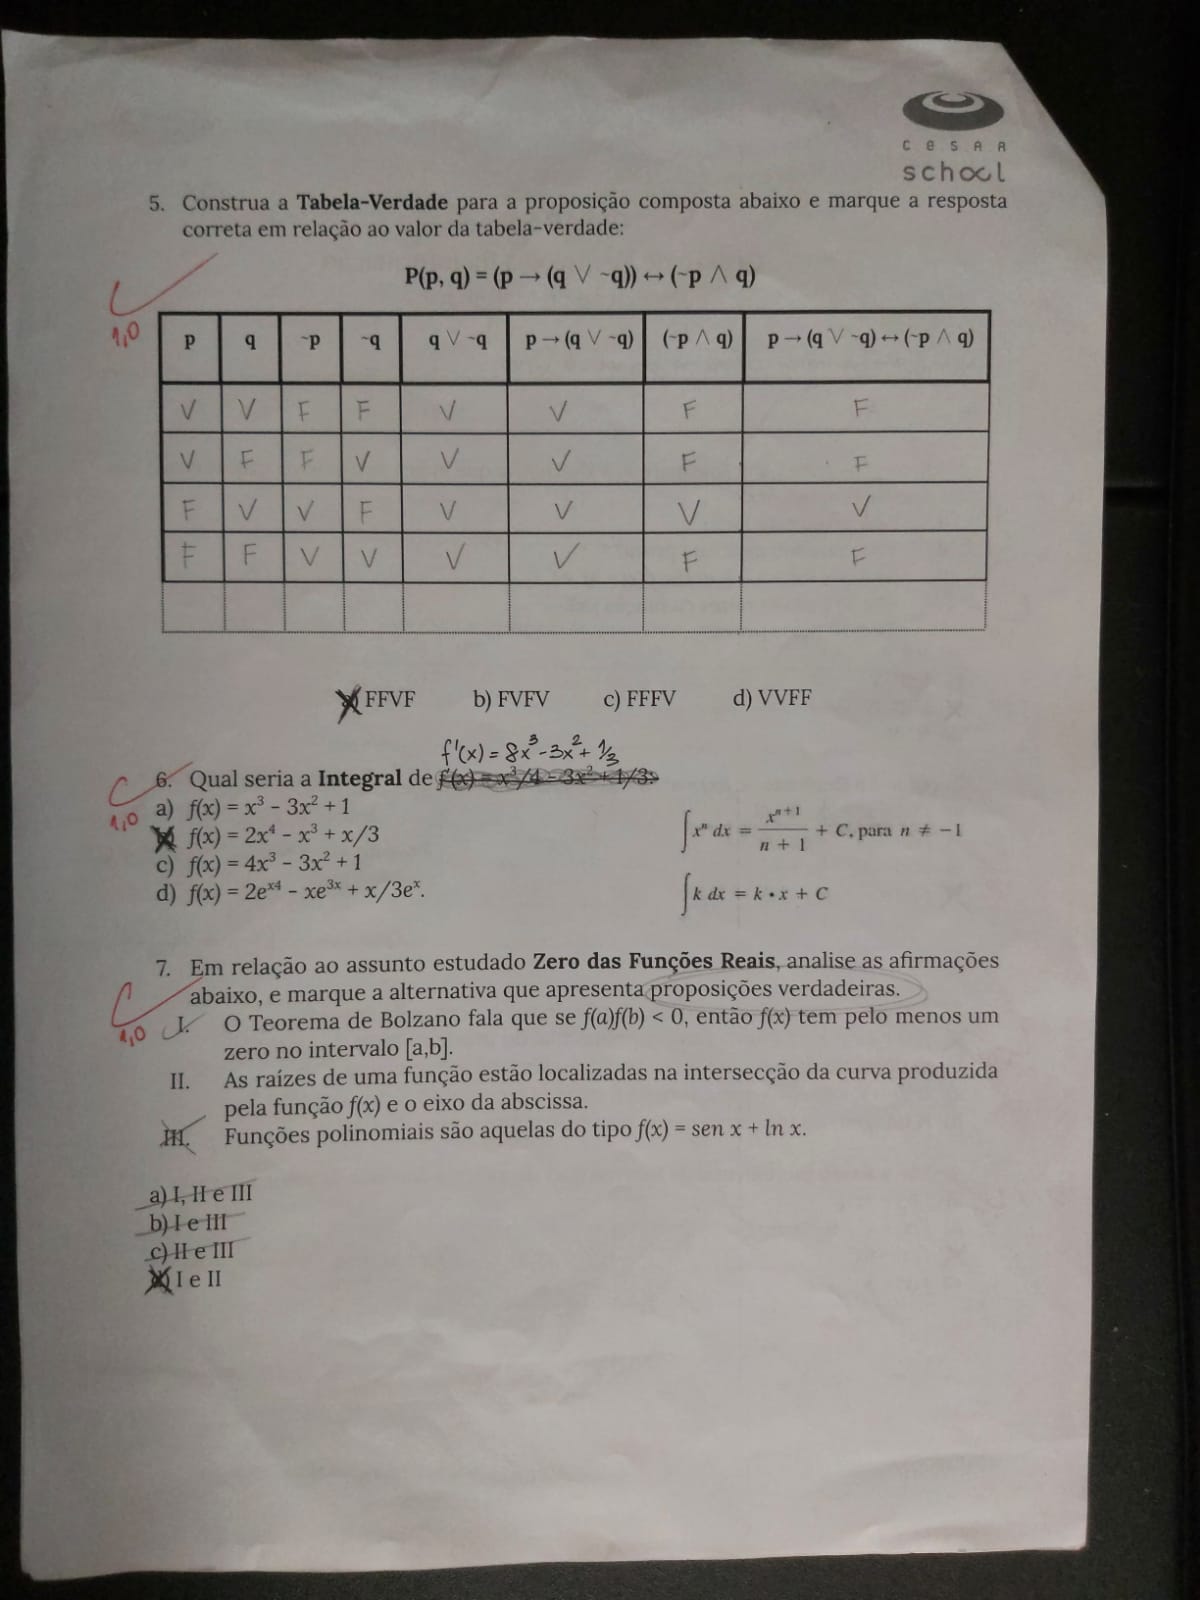 CeSAR
school
5. Construa a Tabela-Verdade para a proposição composta abaixo e marque a resposta
correta em relação ao valor da tabela-verdade:
P(p, q) = (p → (q ∨ ~q)) ↔ (~p ∧ q)
1,0
p q ~p ~q q ∨ ~q p → (q ∨ ~q) (~p ∧ q) p → (q ∨ ~q) ↔ (~p ∧ q)
V V F F V V F F
V F F V V V F F
F V V F V V V V
F F V V V V F F
a) FFVF b) FVFV c) FFFV d) VVFF
f'(x) = 8x³ - 3x² + 1/3
6. Qual seria a Integral de f'(x) = x³/4 - 3x² + 1/3:
1,0
a) f(x) = x³ - 3x² + 1
b) f(x) = 2x⁴ - x³ + x/3
c) f(x) = 4x³ - 3x² + 1
d) f(x) = 2eˣ⁴ - xe³ˣ + x/3eˣ.
∫xⁿ dx = xⁿ⁺¹ / n + 1 + C, para n ≠ -1
∫k dx = k • x + C
7. Em relação ao assunto estudado Zero das Funções Reais, analise as afirmações
abaixo, e marque a alternativa que apresenta proposições verdadeiras.
1,0
I. O Teorema de Bolzano fala que se f(a)f(b) < 0, então f(x) tem pelo menos um
zero no intervalo [a,b].
II. As raízes de uma função estão localizadas na intersecção da curva produzida
pela função f(x) e o eixo da abscissa.
III. Funções polinomiais são aquelas do tipo f(x) = sen x + ln x.
a) I, II e III
b) I e III
c) II e III
d) I e II